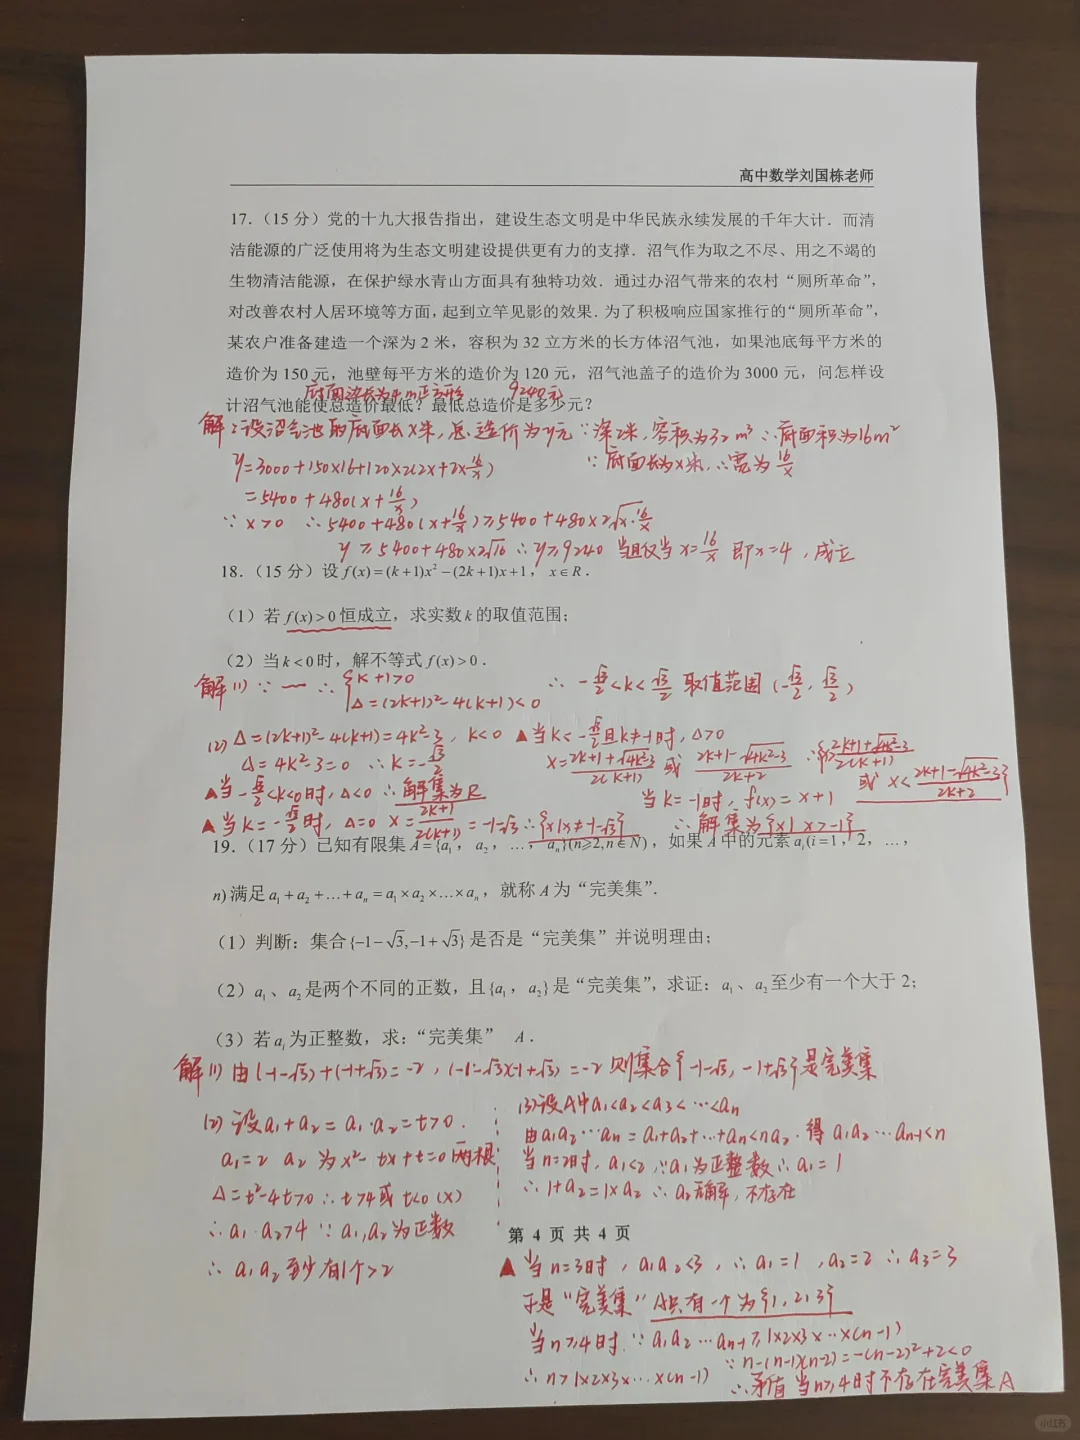 高中数学刘国栋老师
17.（15 分）党的十九大报告指出，建设生态文明是中华民族永续发展的千年大计．而清
洁能源的广泛使用将为生态文明建设提供更有力的支撑．沼气作为取之不尽、用之不竭的
生物清洁能源，在保护绿水青山方面具有独特功效．通过办沼气带来的农村“厕所革命”，
对改善农村人居环境等方面，起到立竿见影的效果．为了积极响应国家推行的“厕所革命”，
某农户准备建造一个深为 2 米，容积为 32 立方米的长方体沼气池，如果池底每平方米的
造价为 150 元，池壁每平方米的造价为 120 元，沼气池盖子的造价为 3000 元，问怎样设
底面边长为4m正方形 9240元
计沼气池能使总造价最低？最低总造价是多少元？
解：设沼气池的底面长x米，总造价为y元 ∵深2米，容积为32m³ ∴底面积为16m²
y=3000+150×16+120×2(2x+2×16/x) ∵底面长为x米，∴宽为16/x
=5400+480(x+16/x)
∵x>0 ∴5400+480(x+16/x)≥5400+480×2√x·16/x
y≥5400+480×2√16 ∴y≥9240 当且仅当x=16/x 即x=4，成立
18.（15 分）设 f(x)=(k+1)x²-(2k+1)x+1， x∈R．
（1）若 f(x)>0 恒成立，求实数 k 的取值范围；
（2）当 k<0 时，解不等式 f(x)>0．
解(1) ∵ ∴{k+1>0 ∴ -√3/2<k<√3/2 取值范围(-√3/2, √3/2)
Δ=(2k+1)²-4(k+1)<0
(2) Δ=(2k+1)²-4(k+1)=4k²-3，k<0 ▲当k<-√3/2且k≠-1时，Δ>0
Δ=4k²-3=0 ∴k=-√3/2 x=2k+1+√4k²-3/2(k+1) 或 2k+1-√4k²-3/2k+2 ∴{x|x>2k+1+√4k²-3/2(k+1)
▲当-√3/2<k<0时，Δ<0 ∴解集为R 或x<2k+1-√4k²-3/2k+2}
当k=-1时，f(x)=x+1
▲当k=-√3/2时，Δ=0 x=2k+1/2(k+1)=-1-√3 ∴{x|x≠-1-√3} ∴解集为{x|x>-1}
19.（17 分）已知有限集 A={a₁， a₂， …， aₙ}(n≥2,n∈N)，如果 A 中的元素 aᵢ(i=1，2，…，
n)满足 a₁+a₂+…+aₙ=a₁×a₂×…×aₙ，就称 A 为“完美集”．
（1）判断：集合{-1-√3,-1+√3}是否是“完美集”并说明理由；
（2）a₁、a₂是两个不同的正数，且{a₁，a₂}是“完美集”，求证：a₁、a₂至少有一个大于 2；
（3）若 aᵢ 为正整数，求：“完美集” A．
解(1)由(-1-√3)+(-1+√3)=-2，(-1-√3)(-1+√3)=-2 则集合{-1-√3，-1+√3}是完美集
(2) 设a₁+a₂=a₁·a₂=t>0.
a₁=2 a₂ 为x²-tx+t=0两根
Δ=t²-4t>0 ∴t>4或t<0(×)
∴a₁·a₂>4 ∵a₁,a₂为正数
∴ a₁ a₂至少有1个>2
(3)设A中a₁<a₂<a₃<…<aₙ
由a₁a₂…aₙ=a₁+a₂+…+aₙ<na₂. 得a₁a₂…aₙ₋₁<n
当n=2时，a₁<2，∵a₁为正整数∴a₁=1
∴1+a₂=1×a₂ ∴a₂无解，不存在
第 4 页 共 4 页
▲当n=3时，a₁a₂<3，∴a₁=1，a₂=2 ∴a₃=3
于是“完美集”A只有一个为{1,2,3}
当n≥4时 ∵a₁a₂…aₙ₋₁≥1×2×3×…×(n-1)
∵n-(n-1)(n-2)=-(n-2)²+2<0
∴n>1×2×3×…×(n-1)
∴矛盾 当n≥4时不存在完美集A
小红书